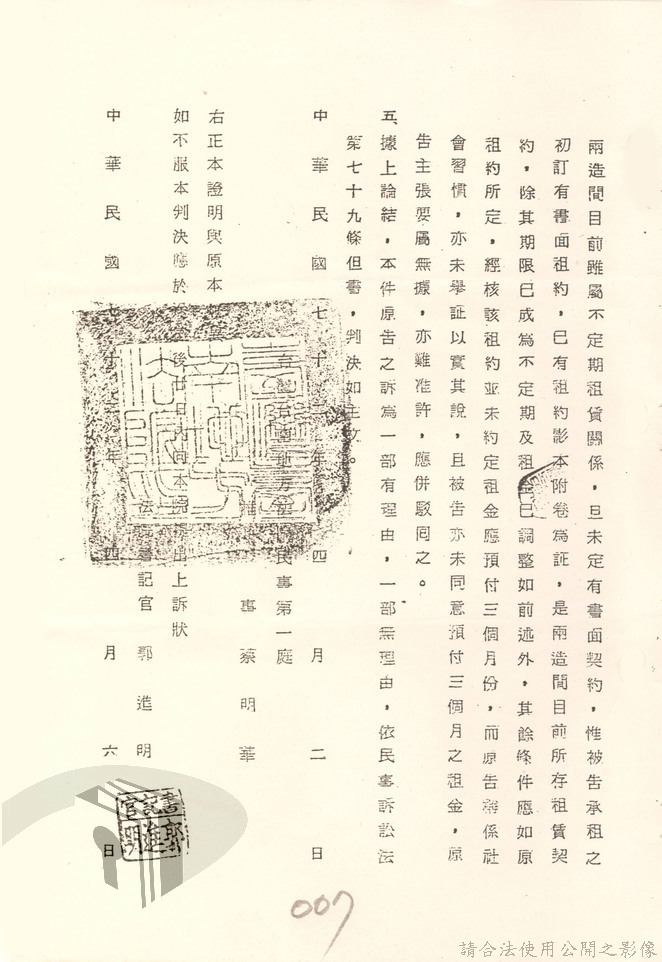 兩造間目前雖屬不定期租賃關係，且未定有書面契約，惟被告承租之
初訂有書面租約，已有租約影本附卷為証，是兩造間目前所存租賃契
約，除其期限已成為不定期及租金已調整如前述外，其餘條件應如原
租約所定，經核該租約並未約定租金應預付三個月份，而原告稱係社
會習慣，亦未舉証以實其說，且被告亦未同意預付三個月之租金，原
告主張要屬無據，亦難准許，應併駁回之。
五、據上論結，本件原告之訴為一部有理由，一部無理由，依民事訴訟法
第七十九條但書，判決如主文。
中華民國七十年四月二日
民事第一庭
事 蔡明華
右正本證明與原本
如不服本判決應於後日內向本出上訴狀
法書記官 郭進明
中華民國七年四月六日
書記官郭進明
007
請合法使用公開之影像